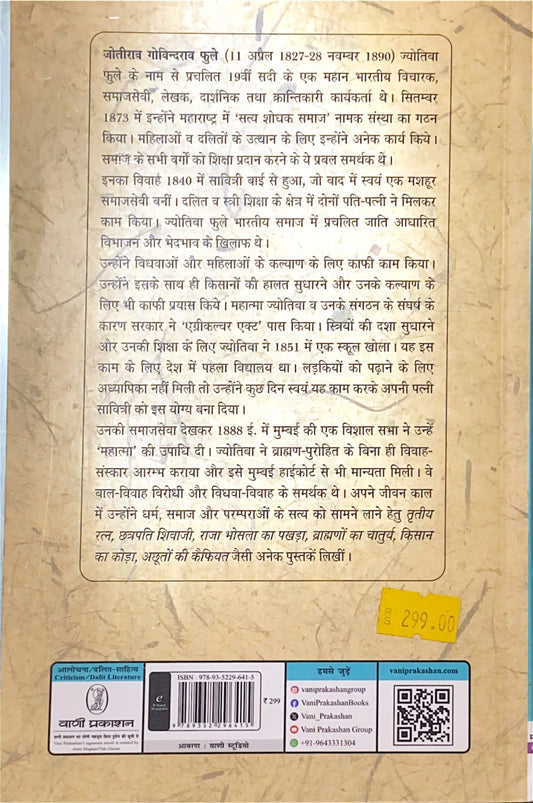 जोतीराव गोविन्दराव फुले (11 अप्रैल 1827-28 नवम्बर 1890) ज्योतिबा
फुले के नाम से प्रचलित 19वीं सदी के एक महान भारतीय विचारक,
समाजसेवी, लेखक, दार्शनिक तथा क्रान्तिकारी कार्यकर्ता थे। सितम्बर
1873 में इन्होंने महाराष्ट्र में 'सत्य शोधक समाज' नामक संस्था का गठन
किया। महिलाओं व दलितों के उत्थान के लिए इन्होंने अनेक कार्य किये।
समाज के सभी वर्गों को शिक्षा प्रदान करने के ये प्रबल समर्थक थे।
इनका विवाह 1840 में सावित्री बाई से हुआ, जो बाद में स्वयं एक मशहूर
समाजसेवी बनीं। दलित व स्त्री शिक्षा के क्षेत्र में दोनों पति-पत्नी ने मिलकर
काम किया। ज्योतिबा फुले भारतीय समाज में प्रचलित जाति आधारित
विभाजन और भेदभाव के ख़िलाफ थे।
उन्होंने विधवाओं और महिलाओं के कल्याण के लिए काफी काम किया।
उन्होंने इसके साथ ही किसानों की हालत सुधारने और उनके कल्याण के
लिए भी काफी प्रयास किये। महात्मा ज्योतिबा व उनके संगठन के संघर्ष के
कारण सरकार ने 'एग्रीकल्चर एक्ट' पास किया। स्त्रियों की दशा सुधारने
और उनकी शिक्षा के लिए ज्योतिबा ने 1851 में एक स्कूल खोला। यह इस
काम के लिए देश में पहला विद्यालय था। लड़कियों को पढ़ाने के लिए
अध्यापिका नहीं मिली तो उन्होंने कुछ दिन स्वयं यह काम करके अपनी पत्नी
सावित्री को इस योग्य बना दिया।
उनकी समाजसेवा देखकर 1888 ई. में मुम्बई की एक विशाल सभा ने उन्हें
'महात्मा' की उपाधि दी। ज्योतिबा ने ब्राह्मण-पुरोहित के बिना ही विवाह-
संस्कार आरम्भ कराया और इसे मुम्बई हाईकोर्ट से भी मान्यता मिली। वे
बाल-विवाह विरोधी और विधवा-विवाह के समर्थक थे। अपने जीवन काल
में उन्होंने धर्म, समाज और परम्पराओं के सत्य को सामने लाने हेतु तृतीय
रत्न, छत्रपति शिवाजी, राजा भोसला का पखड़ा, ब्राह्मणों का चातुर्य, किसान
का कोड़ा, अछूतों की कैफियत जैसी अनेक पुस्तकें लिखीं।
299.00
आलोचना/दलित-साहित्य
Criticism/Dalit Literature
वाणी प्रकाशन
ISBN : 978-93-5229-641-5
9 789352 296415
₹ 299
आवरण : वाणी स्टूडियो
हमसे जुड़ें
vaniprakashangroup
VaniPrakashanBooks
Vani_Prakashan
Vani Prakashan Group
+91-9643331304
vaniprakashan.com